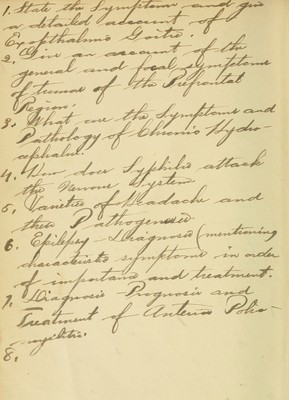 1. State the Symptoms and give
a detailed account of
Exopthalmic Goitre.
2. Give an account of the
general and focal symptoms
of tumor of the Prefrontal
Region.
3. What are the Symptoms and
Pathology of Chronic Hydro-
cephalus.
4. How does Syphilis attack
the Nervous System
5. Varieties of Headache and
their Pathogenesis
6. Epilepsy - Diagnosis (mentioning
characteristic symptoms in order
of importance and treatment.
7. Diagnosis - Prognosis and
Treatment of Anterior Polio-
myelitis.
8.